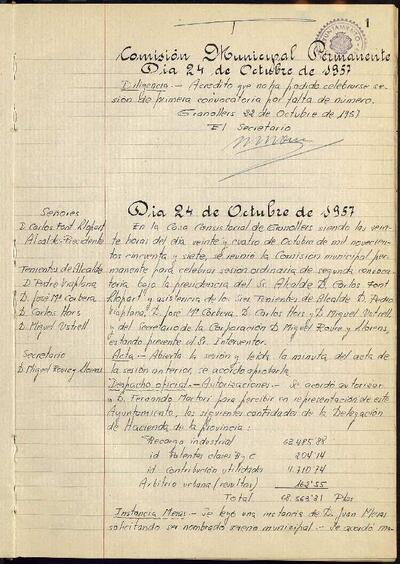 1
AYUNTAMIENTO
Comisión Municipal Permanente
Día 24 de Octubre de 1957
Diligencia.- Acredito que no ha podido celebrarse se-
sión de primera convocatoria por falta de número.
Granollers 22 de Octubre de 1957
El Secretario
Señores
D. Carlos Font Llopart
Alcalde-Presidente
Tenientes de Alcalde
D. Pedro Viaplana
D. José Mª Corbera
D. Carlos Hors
D. Miguel Ustrell
Secretario
D. Miguel Roure y Llorens
Día 24 de Octubre de 1957
En la Casa Consistorial de Granollers siendo las vein-
te horas del día veinte y cuatro de Octubre de mil novecien-
tos cincuenta y siete, se reunió la Comisión municipal per-
manente para celebrar sesión ordinaria de segunda convoca-
toria bajo la presidencia del Sr. Alcalde D. Carlos Font
Llopart y asistencia de los Sres Tenientes de Alcalde D. Pedro
Viaplana, D. José Mª Corbera, D. Carlos Hors y D. Miguel Ustrell,
y del Secretario de la Corporación D. Miguel Roure y Llorens,
estando presente el Sr. Interventor.
Acta.- Abierta la sesión y leída la minuta del acta de
la sesión anterior, se acordó aprobarla.
Despacho oficial.- Autorizaciones.- Se acordó autorizar
a D. Fernando para percibir en representación de este
Ayuntamiento, las siguientes cantidades de la Delegación
de Hacienda de la provincia:
Recargo industrial
id Patentes clases B y C 204'14
id contribución utilidades
Arbitrio urbana (resultas)
Total Ptas
Instancia Meras.- Se leyó una instancia de D. Juan Meras
solicitando ser nombrado sereno municipal.- Se acordó ma-